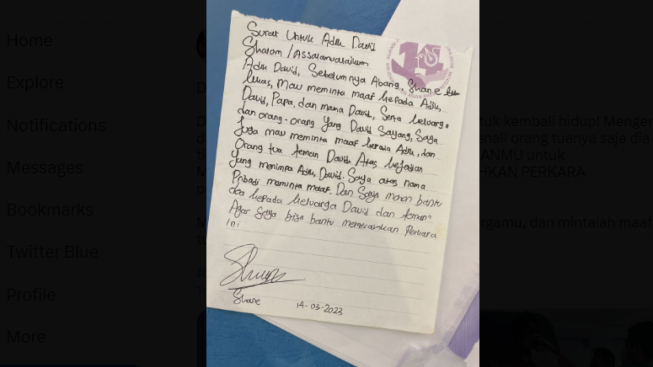 Home
Explore
Notifications
Messages
Bookmarks
Twitter Blue
Profile
More
Surat Untuk Adik David
Shalom / Assalamualaikum
Adik David, Sebelumnya Abang, Shane
Luas, Mau meminta maaf kepada Adik,
David, Papa, dan mama David, Serta keluarga
dan orang-orang yang David Sayang, Saya
Juga mau meminta maaf kepada Adik, dan
Orang tua teman David Atas kejadian
yang menimpa Adik David. Saya atas nama
Pribadi meminta maaf. Dan Saya mohon bantu
doa kepada keluarga David dan teman"
Agar Saya bisa bantu Perkara
ini
Shane
14-03-2023
untuk kembali hidup! Menger
orang tuanya saja dia
ANMU untuk
HKAN PERKARA
dan mintalah maaf